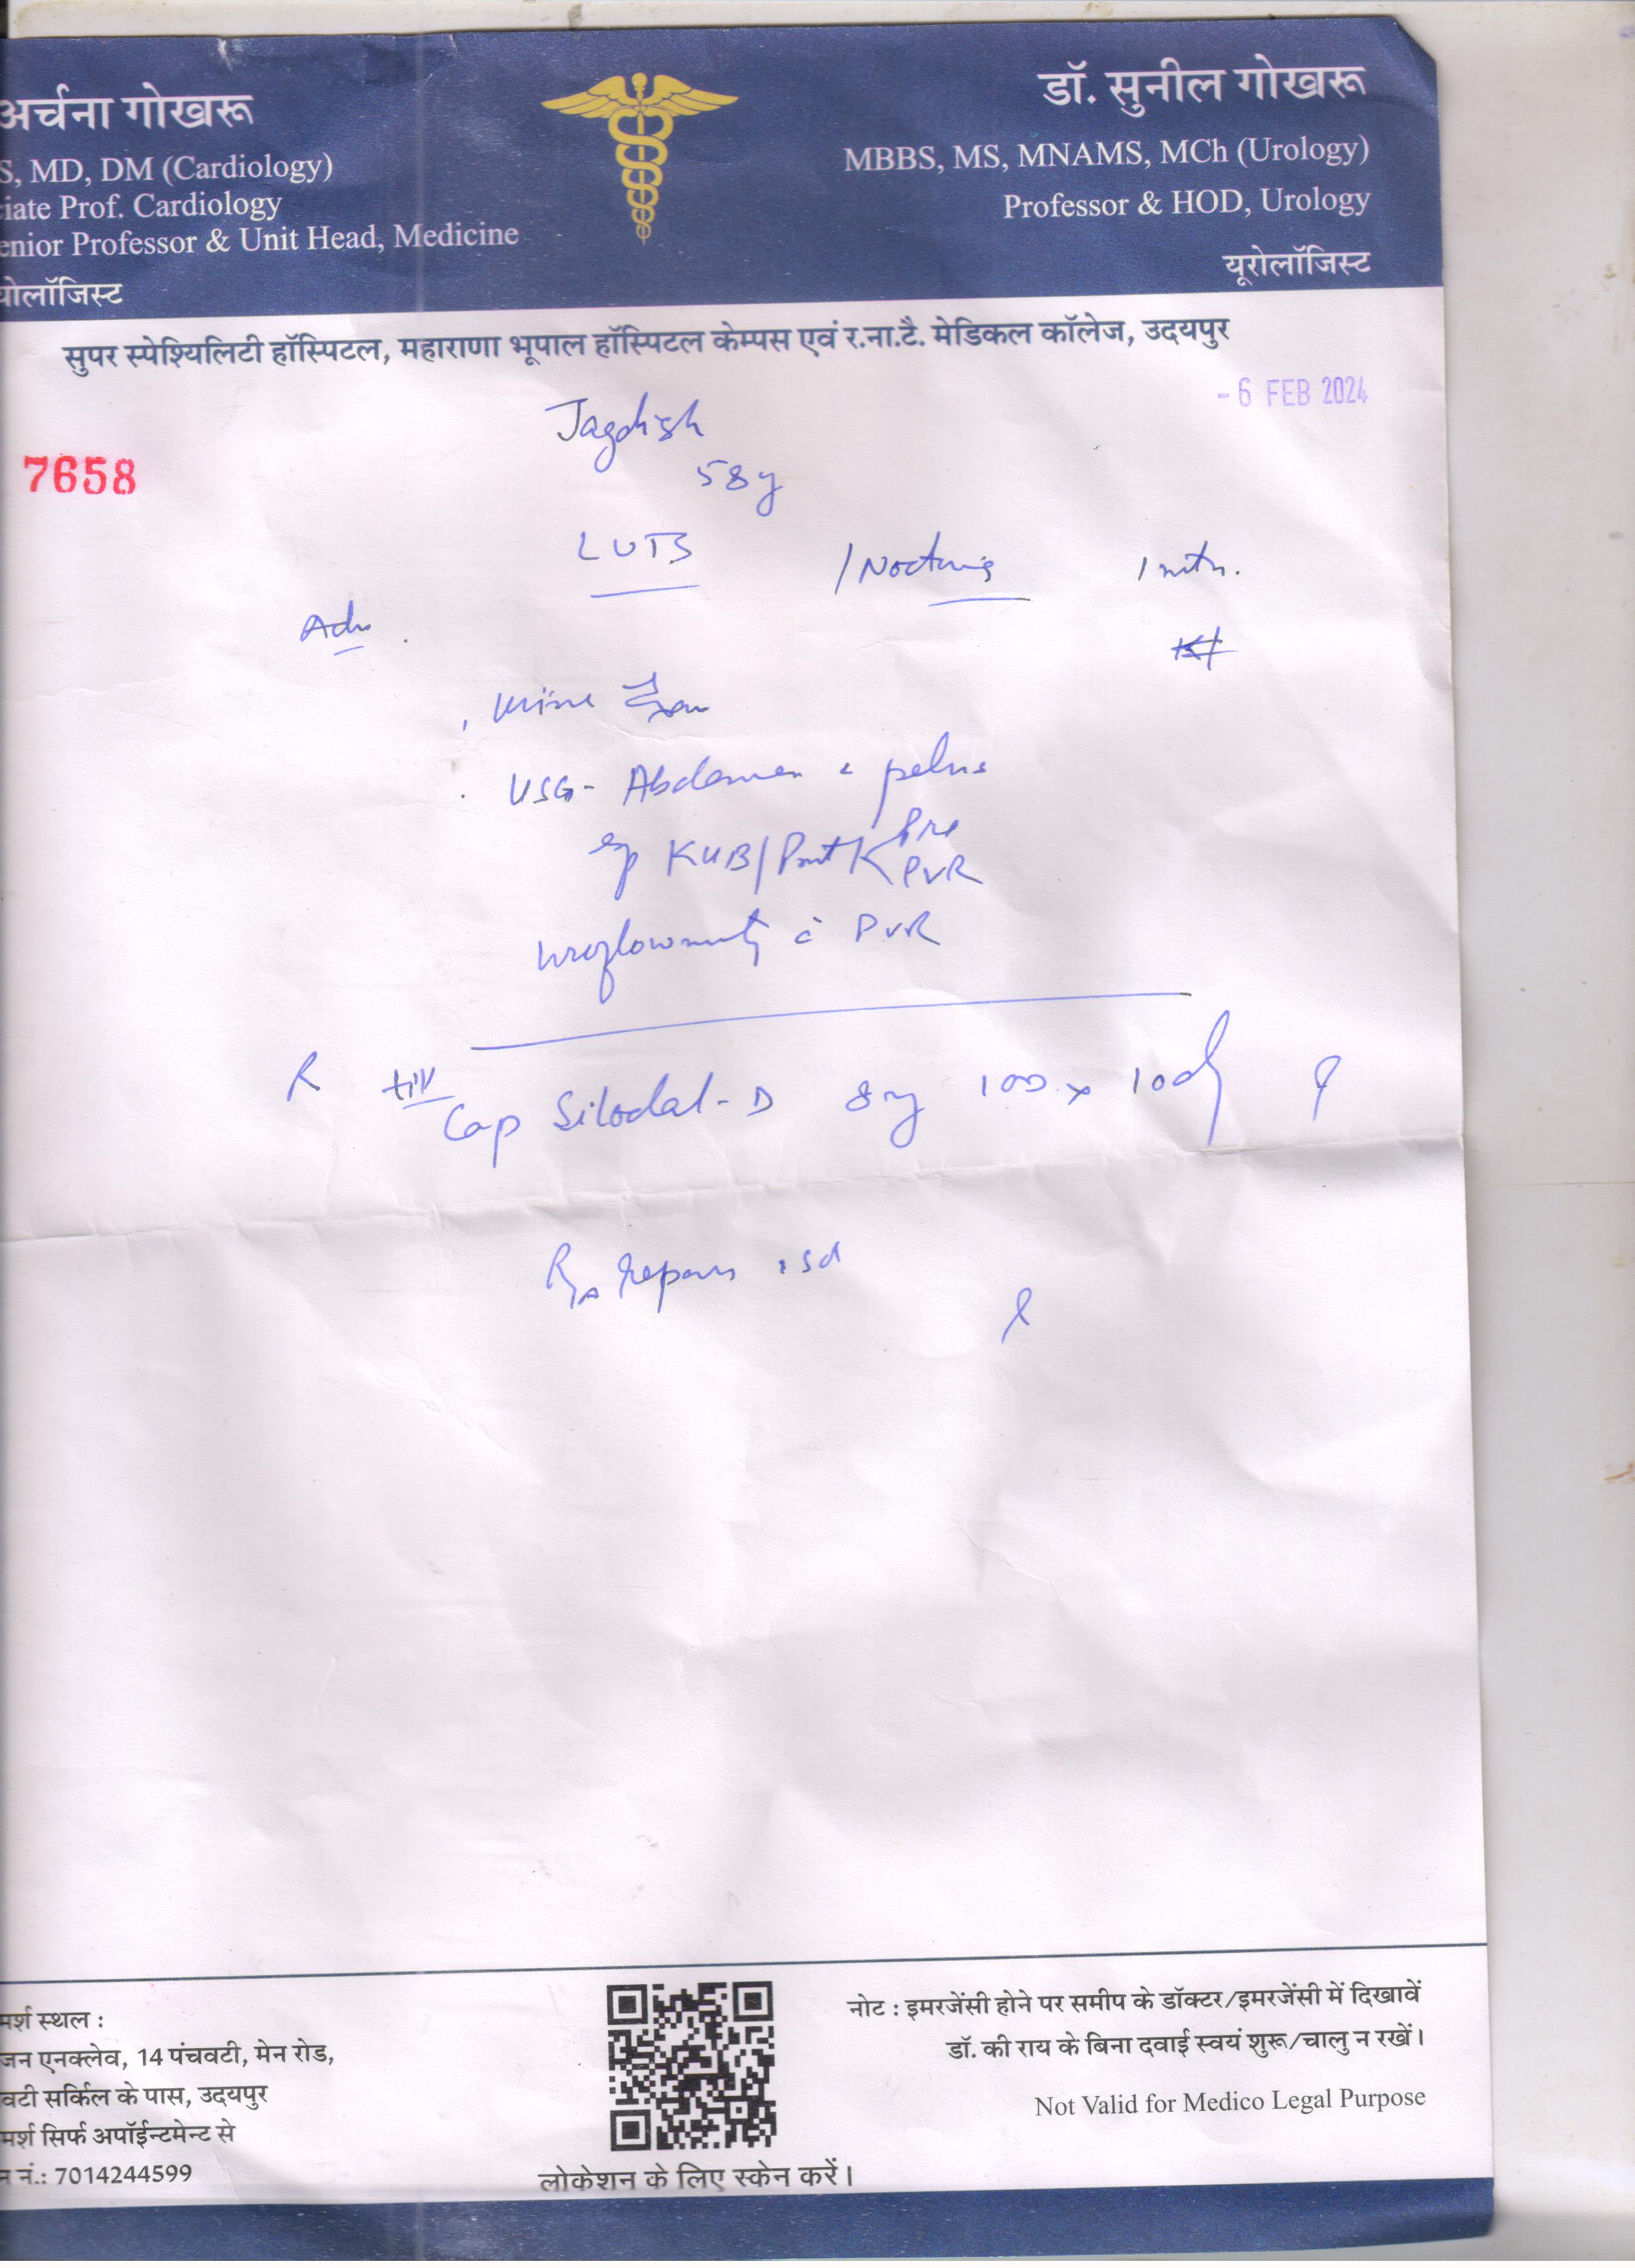 अर्चना गोखरू
S, MD, DM (Cardiology)
iate Prof. Cardiology
enior Professor & Unit Head, Medicine
योलॉजिस्ट
डॉ. सुनील गोखरू
MBBS, MS, MNAMS, MCh (Urology)
Professor & HOD, Urology
यूरोलॉजिस्ट
सुपर स्पेश्यिलिटी हॉस्पिटल, महाराणा भूपाल हॉस्पिटल केम्पस एवं र.ना.टै. मेडिकल कॉलेज, उदयपुर
- 6 FEB 2024
7658
Jagdish
58y
LUTS / Nocturia
Adv
Urine
USG - Abdomen & pelvis
KUB / Prost Pre
PVR
Uroflowmetry c̄ PVR
R till
Cap Silodal-D 8mg 100 x 10d
मर्श स्थल :
जन एनक्लेव, 14 पंचवटी, मेन रोड,
वटी सर्किल के पास, उदयपुर
मर्श सिर्फ अपॉईन्टमेन्ट से
न नं.: 7014244599
लोकेशन के लिए स्केन करें।
नोट : इमरजेंसी होने पर समीप के डॉक्टर/इमरजेंसी में दिखावें
डॉ. की राय के बिना दवाई स्वयं शुरू/चालु न रखें।
Not Valid for Medico Legal Purpose